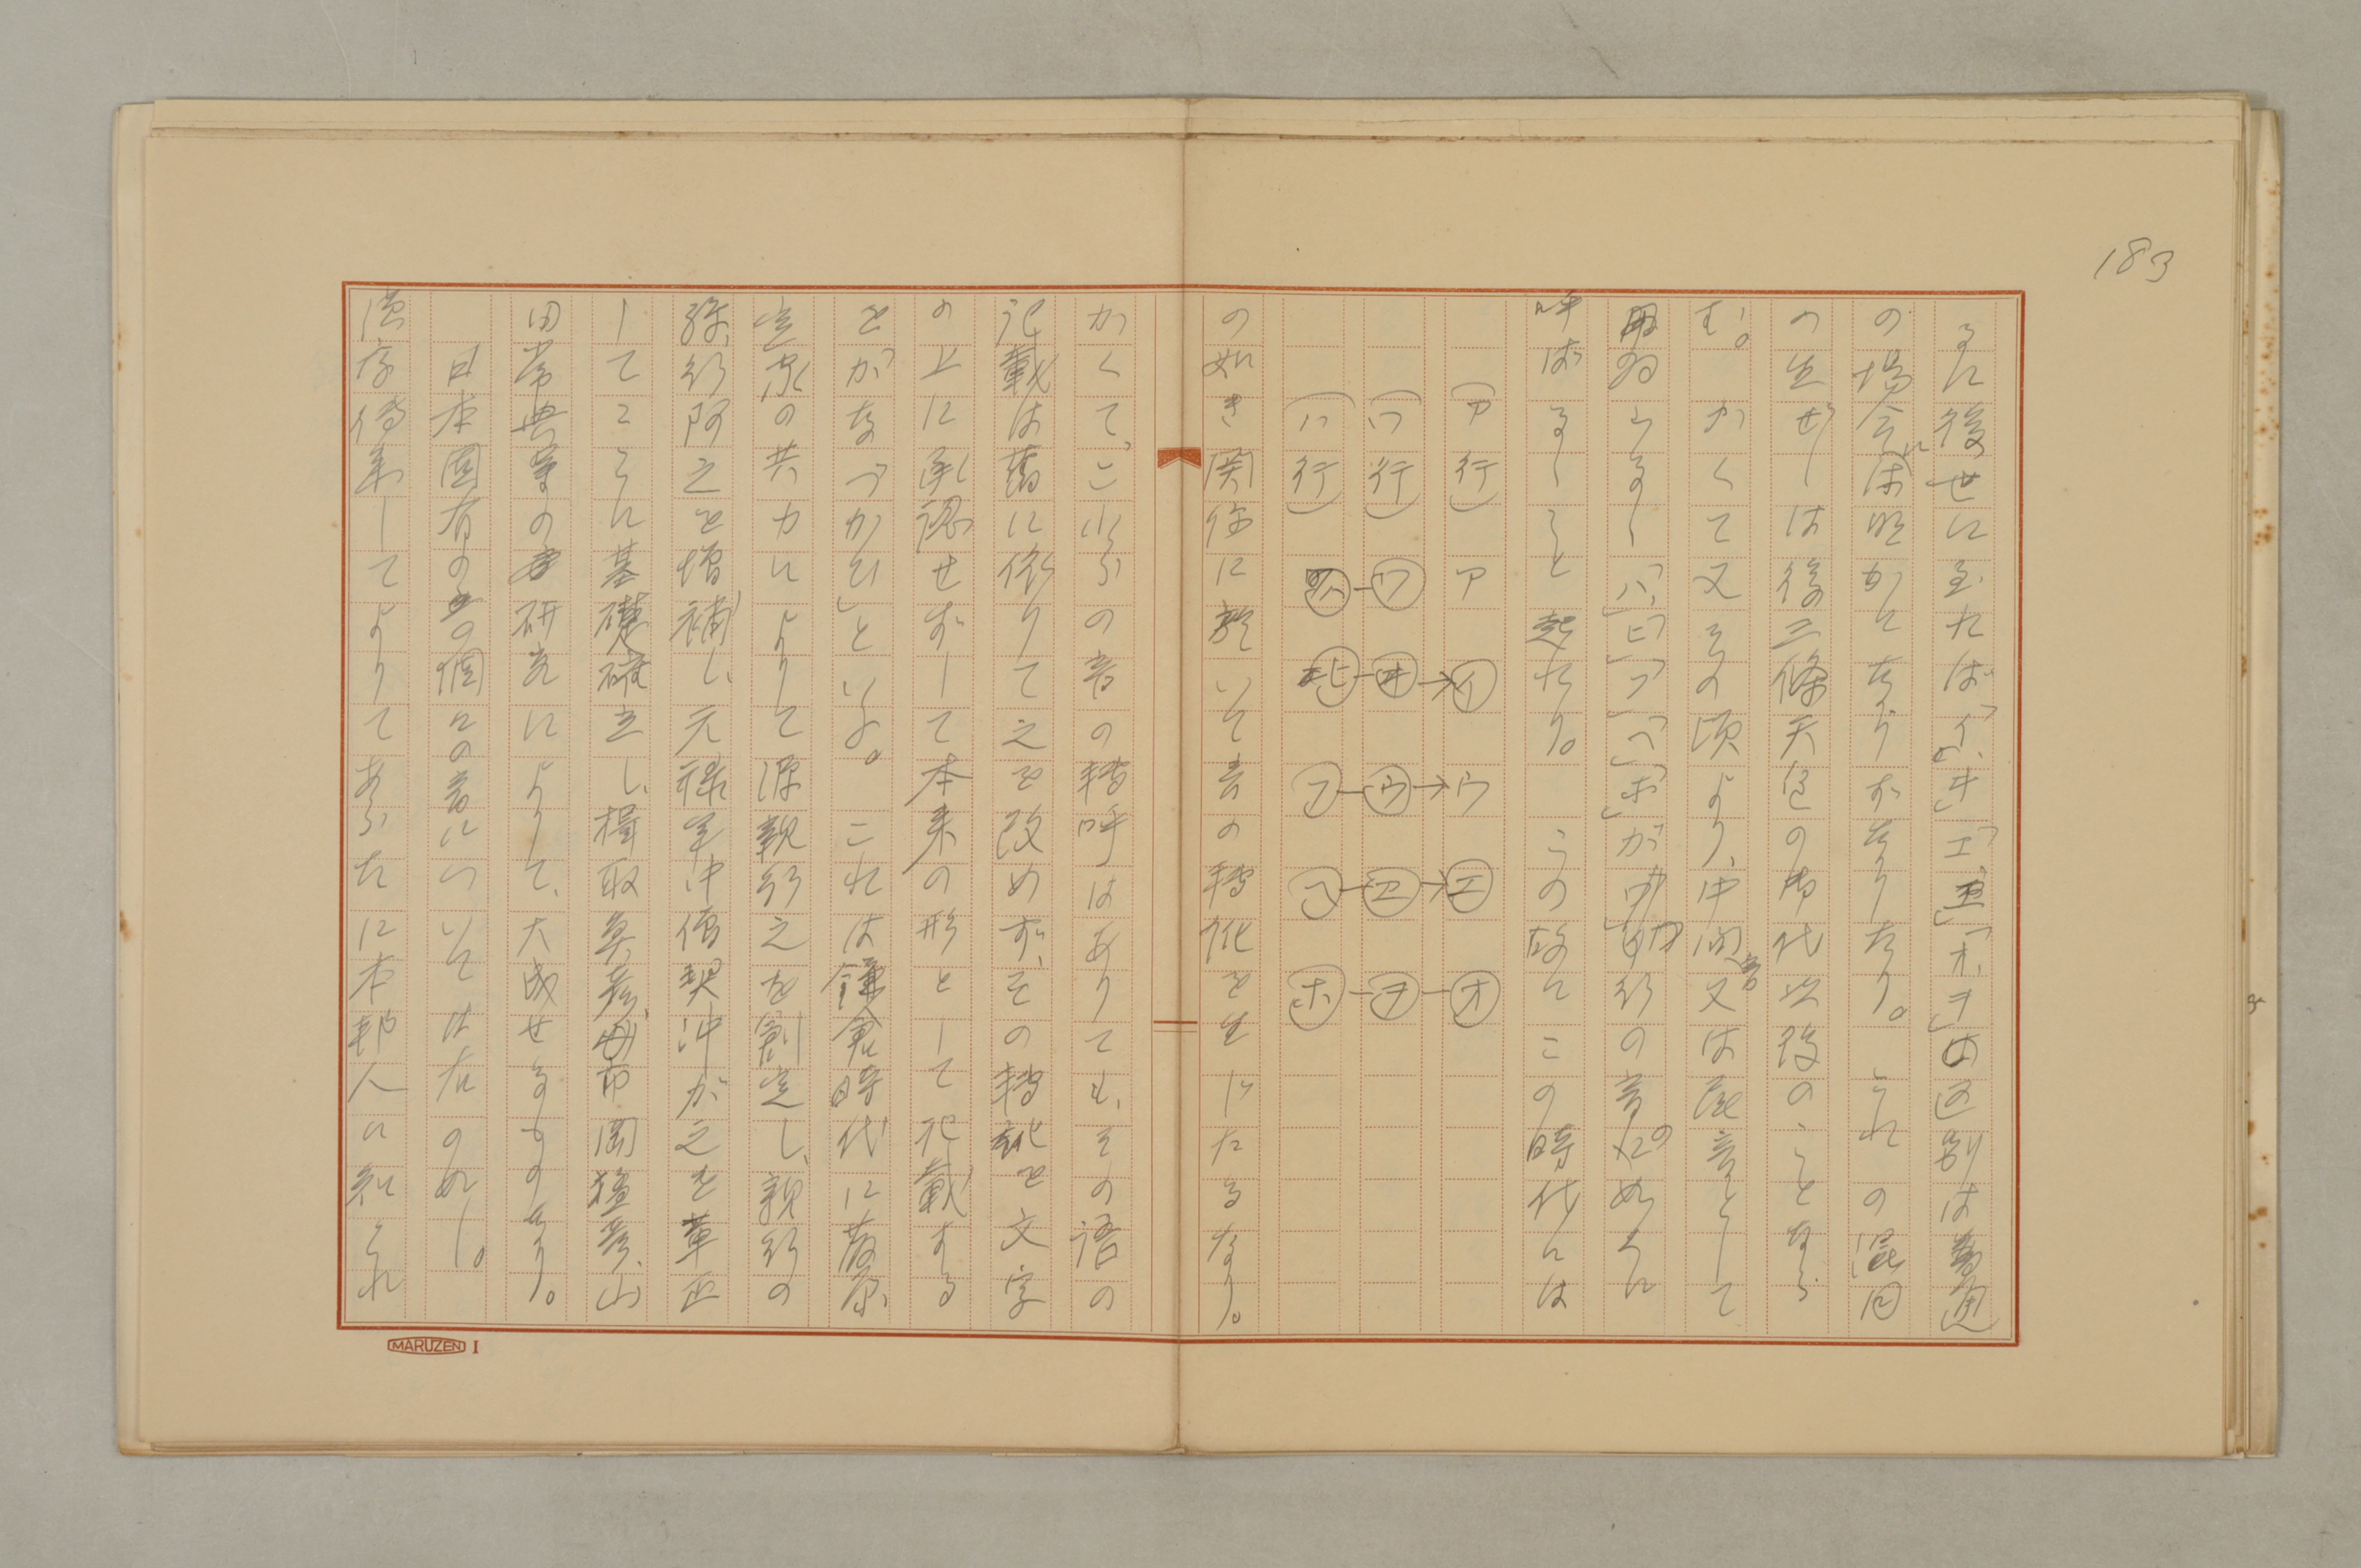 183
るに後世に至れば「イ、ヰ」「エ、ヱ」「オ、ヲ」の区別は普通
の場合には明かに存りがたくなりたり。これの混同
の生ぜしは後三條天皇の御代以後のことなら
む。かくて又その頃より、中間又は尾音として
用ゐらるる「ハ」「ヒ」「フ」「ヘ」「ホ」がワ行の音の如くに
呼ばるること起れり。この故にこの時代には
(ア行) ア イ ウ エ オ
(ワ行) ワ ヰ ウ ヱ ヲ
(ハ行) ハ ヒ フ ヘ ホ
の如き関係に於いて音の轉化を生じたるなり。
かくて、これらの音の轉呼はありても、その語の
記載は舊に依りて之を改めず、その轉訛を文字
の上に承認せずして本来の形として記載する
を「かなづかひ」といふ。これは鎌倉時代に藤原
定家の共力によりて源親行之を創定し、親行の
孫、行阿之を増補し、元禄年中僧契沖が之を革正
してここに基礎確立し、楫取魚彦、市岡猛彦、山
田常典等の研究によりて、大成せるものなり。
日本固有の個々の音については右の如し。
漢字傳来してよりてあらたに本邦人に知られ
MARUZEN I